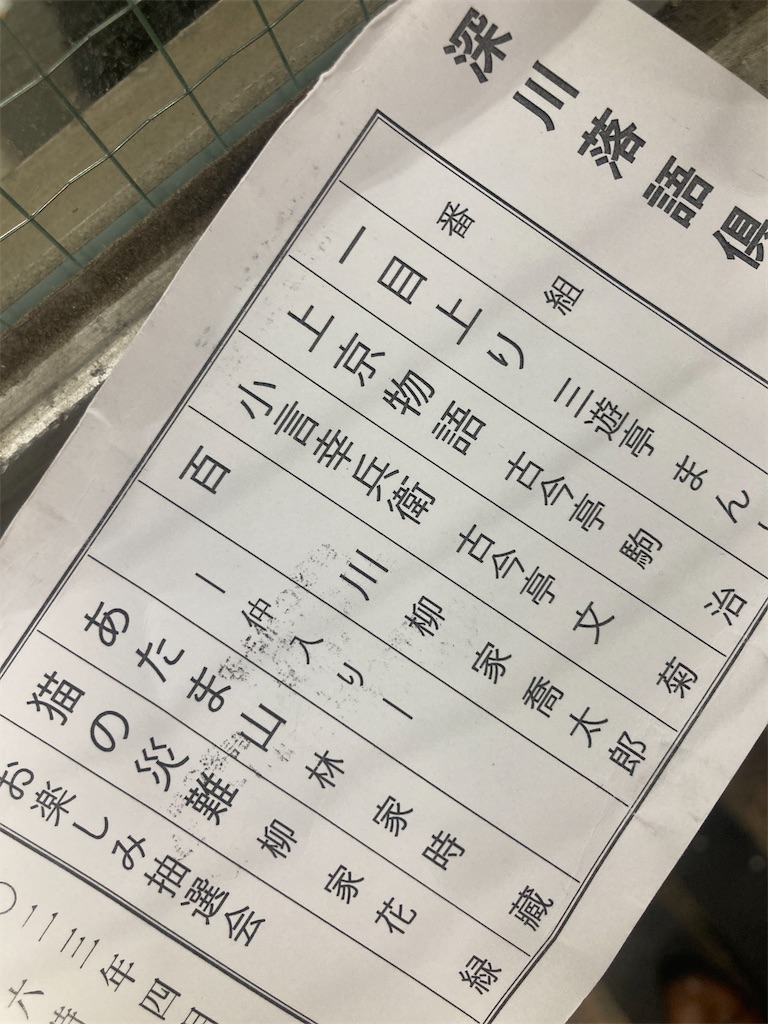 深川落語倶
番組
一目上り 三遊亭まん
上京物語 古今亭駒治
小言幸兵衛 古今亭文菊
百川 柳家喬太郎
ー仲入りー
あたま山 林家時蔵
猫の災難 柳家花緑
お楽しみ抽選会
〇二三年四月
六時